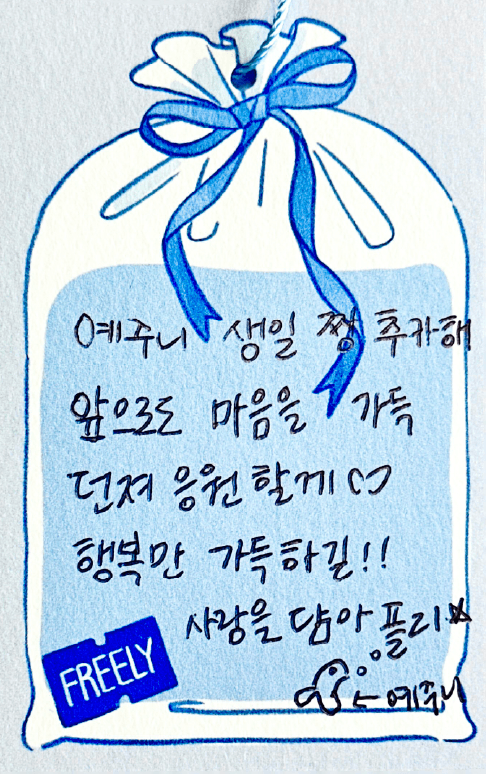 예주니 생일 짱 추카해
앞으로도 마음을 가득
던져 응원할게♡
행복만 가득하길!!
사랑을 담아 플리☆
FREELY
←예주니